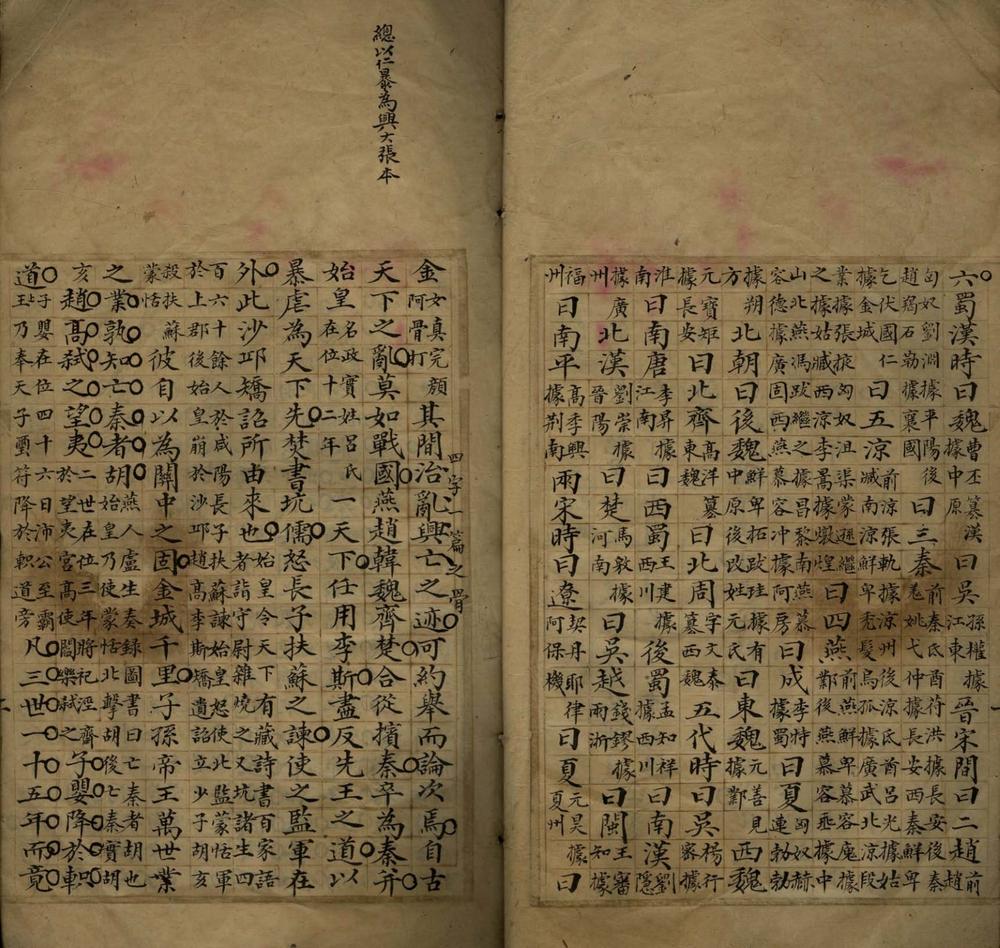 六蜀漢時曰魏曹丕篡漢據中原曰吳孫權據江東晉宋間曰二趙前趙
匈奴劉淵據平陽後趙羯石勒據襄國曰三秦前秦氐酋苻洪據長安後秦羌姚弋仲據長安西秦鮮卑
乞伏國仁據金城曰五涼前涼張軌據涼州後涼氐酋呂光據姑臧南涼鮮卑禿髮烏孤據廣武北涼段
業據張掖匈奴沮渠蒙遜繼之據姑臧西涼李暠據燉煌曰四燕前燕鮮卑慕容廆據鄴後燕慕容垂據中
山北燕馮跋繼燕據昌黎南燕慕容德據廣固西燕慕容冲據阿房曰成李特據蜀曰夏匈奴赫連勃勃
據朔方北朝曰後魏鮮卑拓跋珪據有中原後改姓元氏曰東魏元善見據鄴西魏
元寶炬據長安曰北齊高洋篡東魏曰北周宇文泰篡西魏五代時曰吳楊行密據
淮南曰南唐李昪據江南曰西蜀王建據西川後蜀孟知祥據西川曰南漢劉隱
據廣州北漢劉崇據晉陽曰楚馬據河南曰吳越錢鏐據兩浙曰閩王審知據
福州曰南平高季興據荊南兩宋時曰遼契丹耶律阿保機曰夏元昊據夏州曰
總以仁暴為興大張本
四字一篇之骨
金女真完顏阿骨打其間治亂興亡之迹可約舉而論次焉自古
天下之亂莫如戰國燕趙韓魏齊楚合從擯秦卒為秦并
始皇名政實姓呂氏在位十二年一天下任用李斯盡反先王之道以
暴虐為天下先焚書坑儒怒長子扶蘇之諫使之監軍在
外此沙邱矯詔所由來也始皇令天下有藏詩書百家語者詣守尉雜燒之又坑諸生四
百六十餘人於咸陽長子扶蘇諫始皇怒使北監蒙恬軍於上郡後始皇崩於沙邱趙高李斯矯遺詔立少子胡亥
殺扶蘇蒙恬彼自以為關中之固金城千里子孫帝王萬世業
之業孰知亡秦者胡燕人盧生奏錄圖書曰亡秦者胡也始皇乃使蒙恬北擊胡後亡秦實胡
亥趙高弒之望夷二世在位三年將祀涇齊於望夷宮高使閻樂弒之子嬰降於軹
道子嬰在位四十六日沛公至霸上王乃奉天子璽符降於軹道旁凡三世一十五年而竟